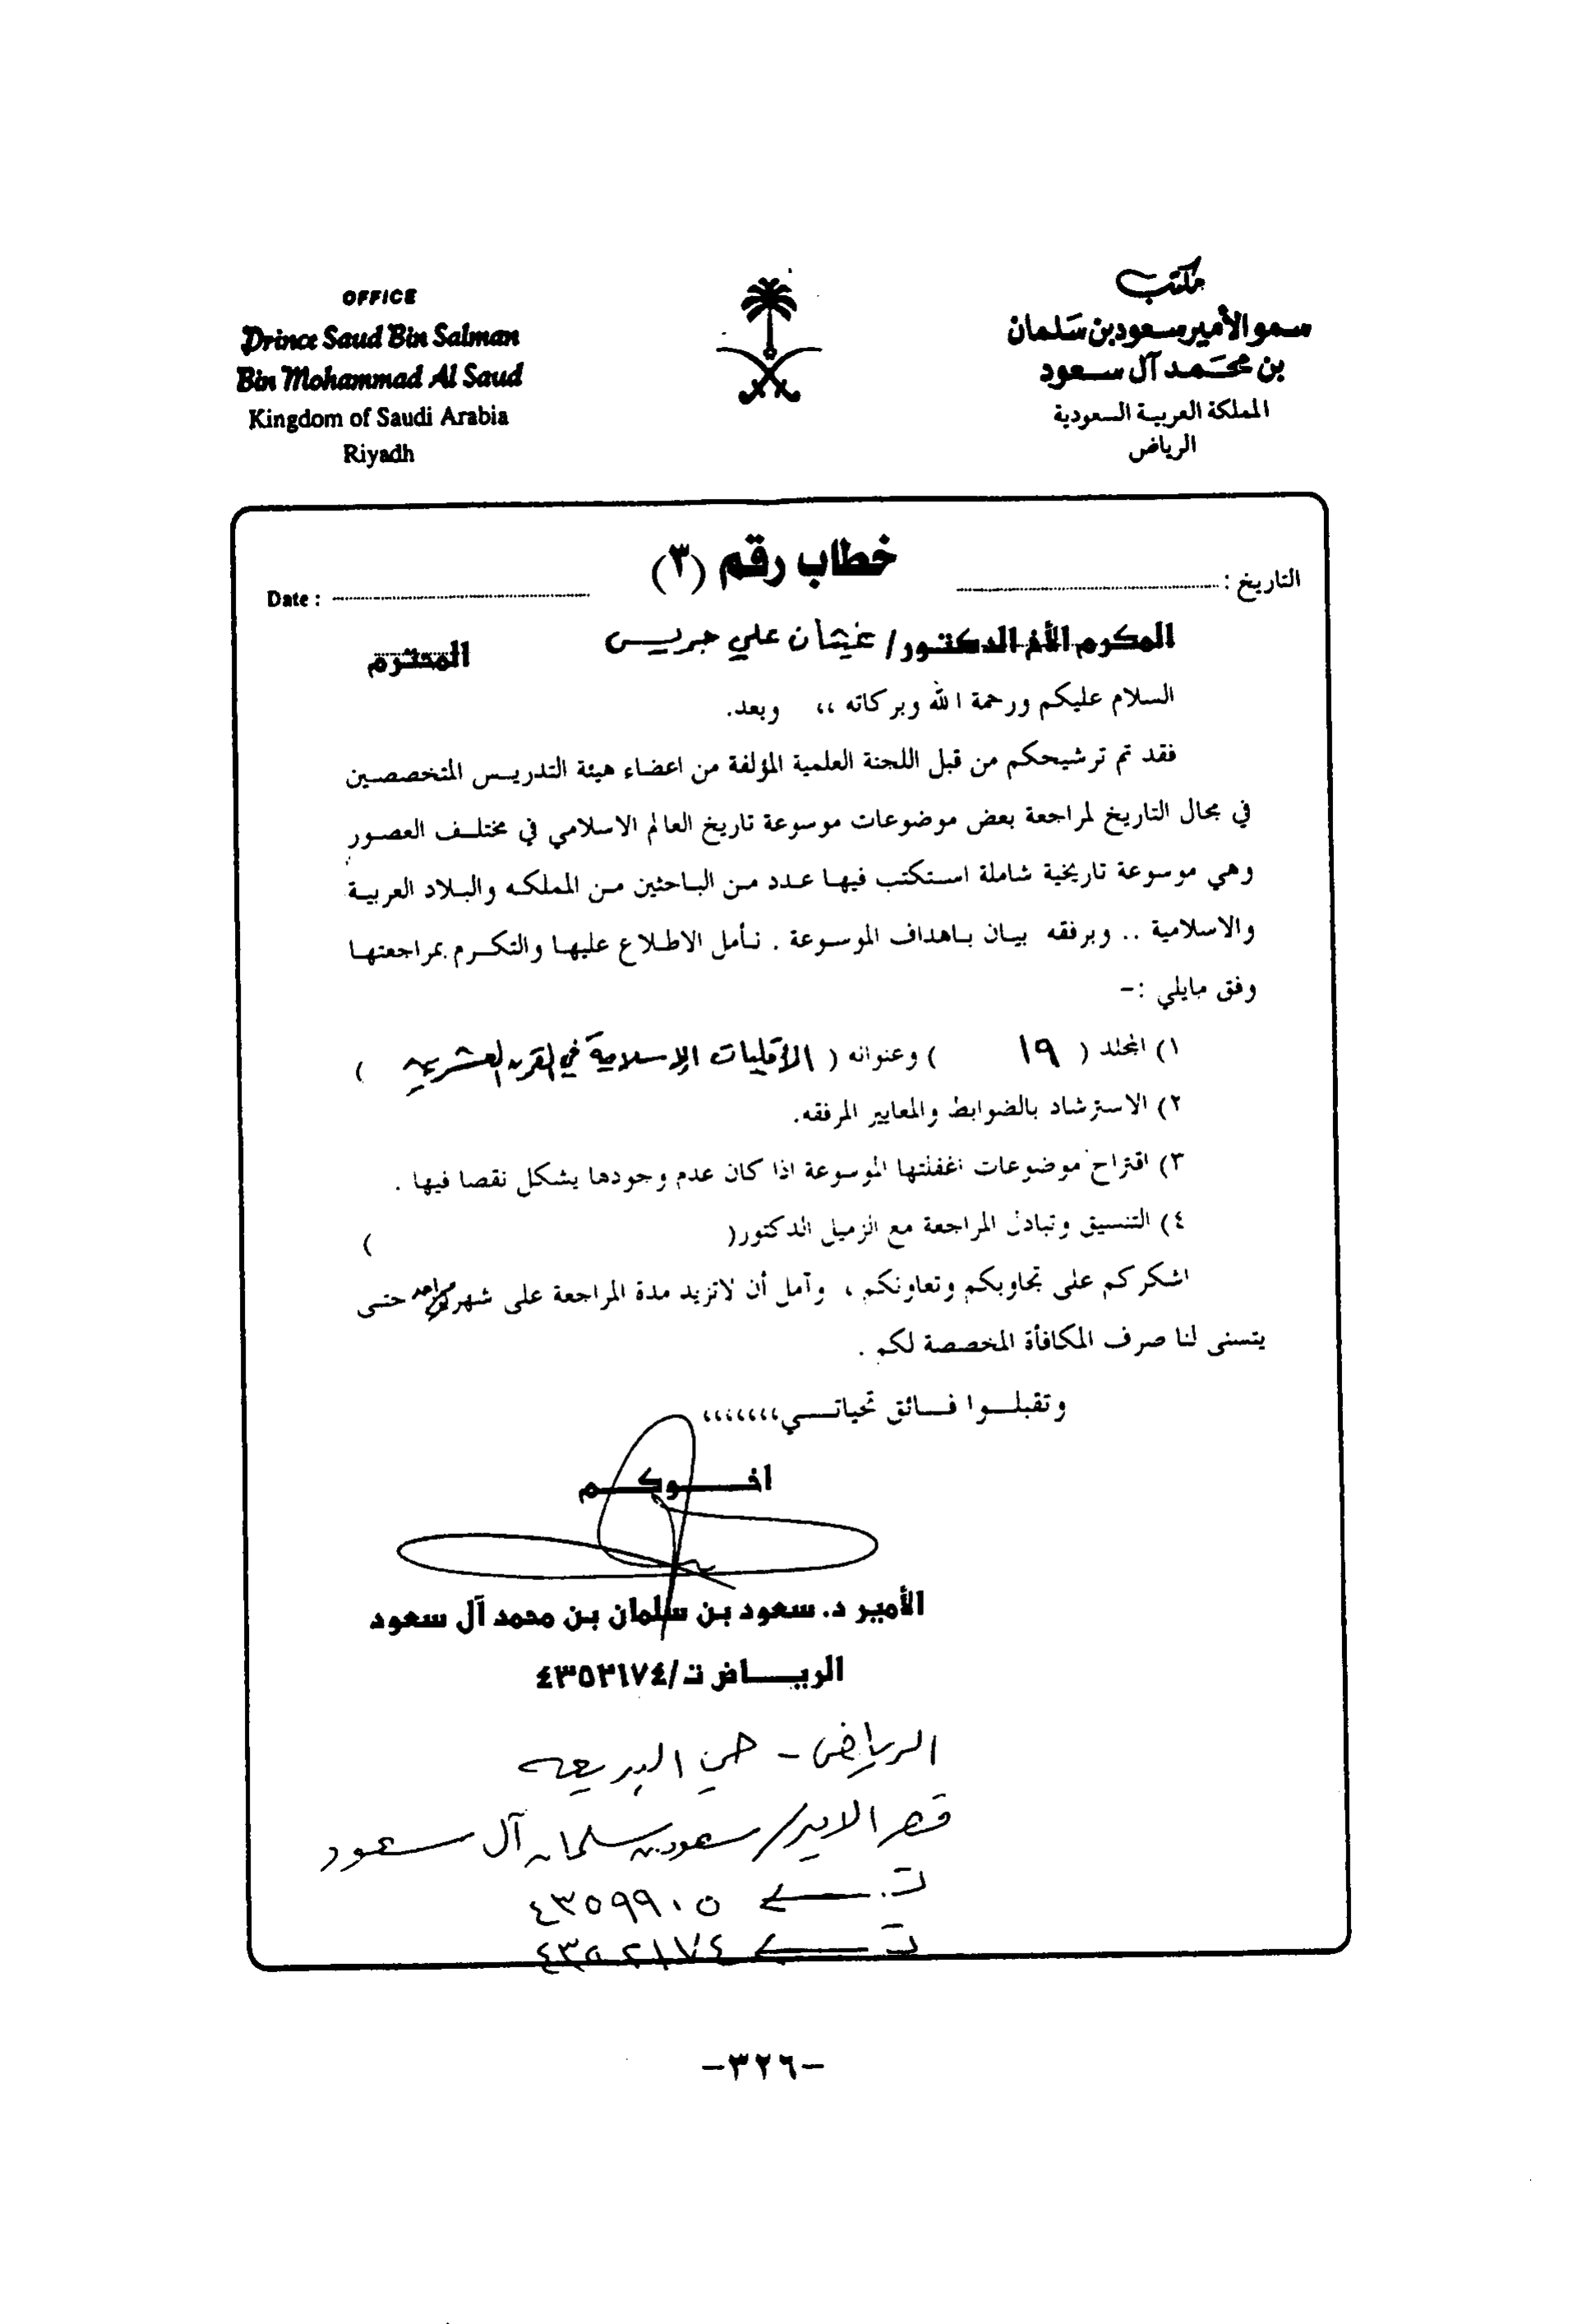 مكتب
سمو الأمير سعود بن سَلمان
بن محَمد آل سعود
المملكة العربية السعودية
الرياض
OFFICE
Prince Saud Bin Salman
Bin Mohammad Al Saud
Kingdom of Saudi Arabia
Riyadh
خطاب رقم (٣)
التاريخ :
Date :
المكرم الأخ الدكتور/ غيثان علي جريس المحترم
السلام عليكم ورحمة الله وبركاته ،، وبعد.
فقد تم ترشيحكم من قبل اللجنة العلمية المؤلفة من اعضاء هيئة التدريس المتخصصين
في مجال التاريخ لمراجعة بعض موضوعات موسوعة تاريخ العالم الاسلامي في مختلف العصور
وهي موسوعة تاريخية شاملة استكتب فيها عدد من الباحثين من المملكه والبلاد العربية
والاسلامية .. وبرفقه بيان باهداف الموسوعة . نأمل الاطلاع عليها والتكرم بمراجعتها
وفق مايلي :-
١) المجلد ( ١٩ ) وعنوانه ( الأقليات الإسلامية في القرن العشرين )
٢) الاسترشاد بالضوابط والمعايير المرفقه.
٣) اقتراح موضوعات اغفلتها الموسوعة اذا كان عدم وجودها يشكل نقصا فيها .
٤) التنسيق وتبادل المراجعة مع الزميل الدكتور( )
اشكركم على تجاوبكم وتعاونكم ، وآمل أن لاتزيد مدة المراجعة على شهر واحد حتى
يتسنى لنا صرف المكافأة المخصصة لكم .
وتقبلوا فائق تحياتي،،،،،،،
اخوكم
الأمير د. سعود بن سلمان بن محمد آل سعود
الرياض ت/٤٣٥٢١٧٤
الرياض - حي البديعه
قصر الامير/ سعود بن سلمان آل سعود
ت. ٤٣٥٩٩٠٥
ت ٤٣٥٢١٧٤
-٣٢٦-